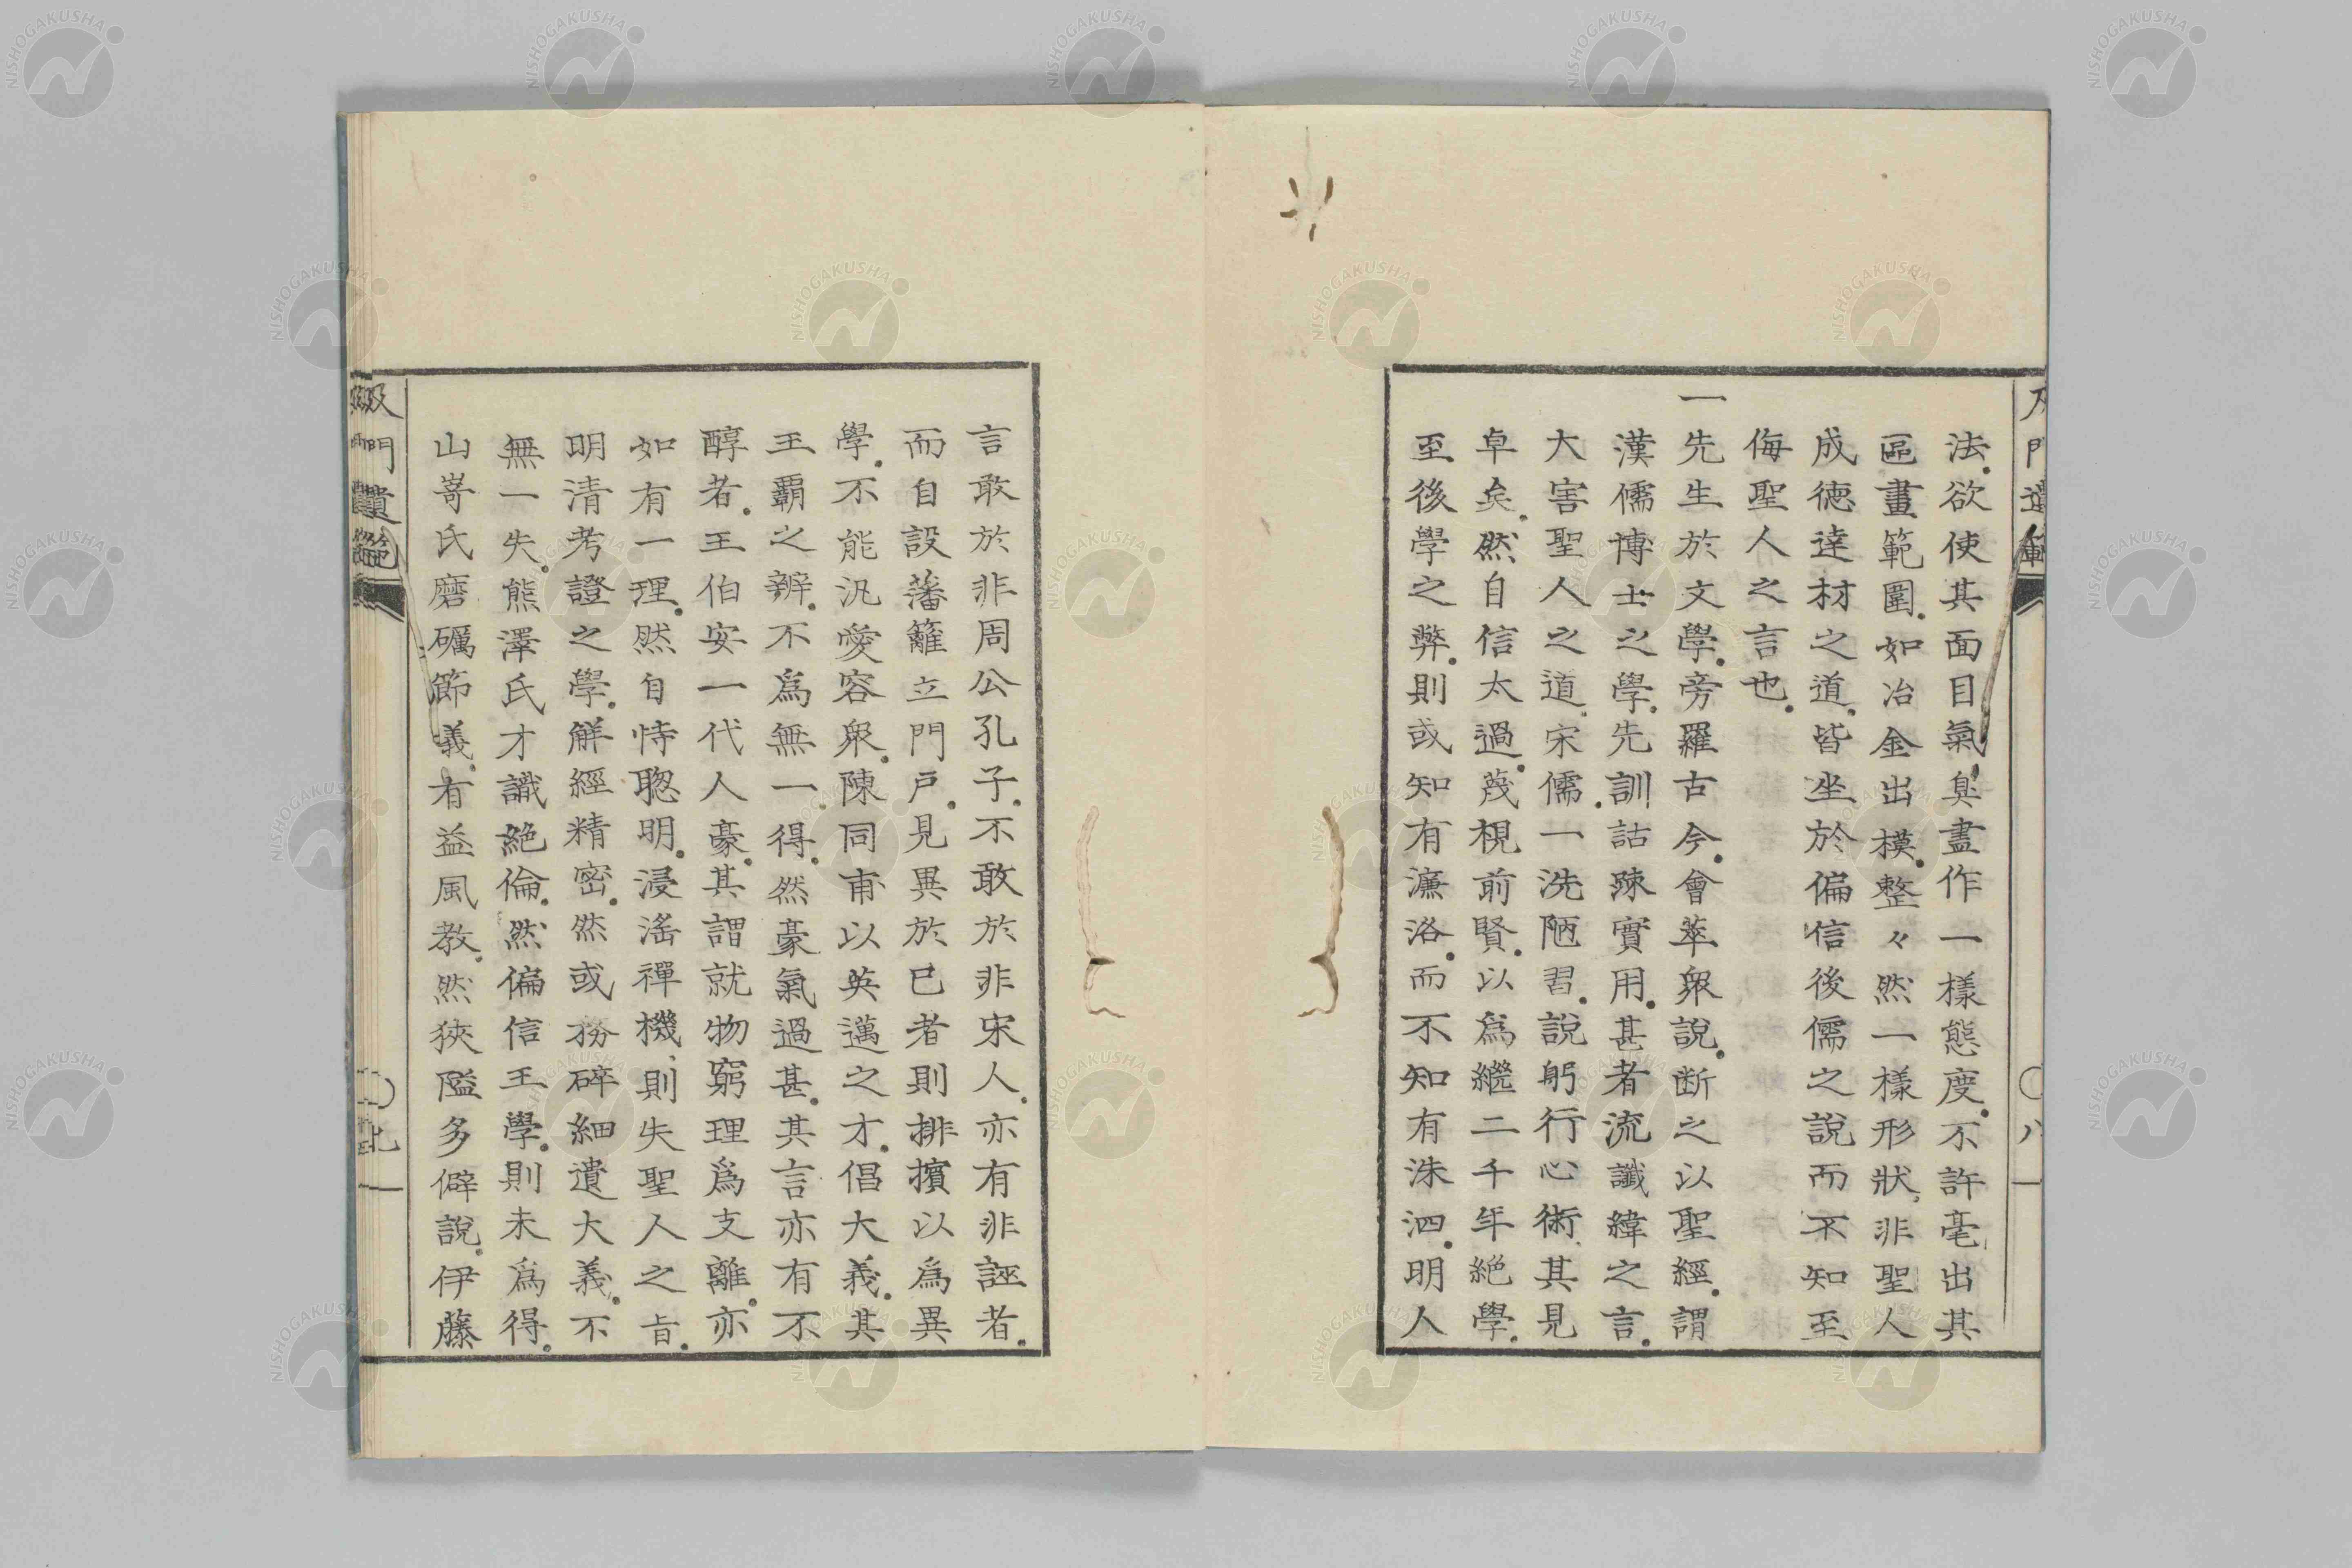 法。欲使其面目氣臭盡作一樣態度。不許毫出其
區畫範圍。如冶金出模。整々然一樣形狀。非聖人
成德達材之道。皆坐於偏信後儒之說而不知至
侮聖人之言也。
一先生於文學。旁羅古今。會萃衆說。断之以聖經。謂
漢儒博士之學。先訓詁疎實用。甚者流讖緯之言。
大害聖人之道。宋儒一洗陋習。說躬行心術。其見
卓矣。然自信太過。蔑視前賢。以爲繼二千年絕學。
至後學之弊。則或知有濂洛。而不知有洙泗。明人
言敢於非周公孔子。不敢於非宋人。亦有非誣者。
而自設藩籬立門戶。見異於己者則排擯以爲異
學。不能汎愛容衆。陳同甫以英邁之才。倡大義。其
王霸之辨。不爲無一得。然豪氣過甚。其言亦有不
醇者。王伯安一代人豪。其謂就物窮理爲支離。亦
如有一理。然自恃聰明。浸淫禪機。則失聖人之旨。
明清考證之學。解經精密。然或務碎細遺大義。不
無一失。熊澤氏才識絕倫。然偏信王學。則未爲得。
山嵜氏磨礪節義。有益風教。然狹隘多僻說。伊藤
及門遺範
〇八
NISHOGAKUSHA